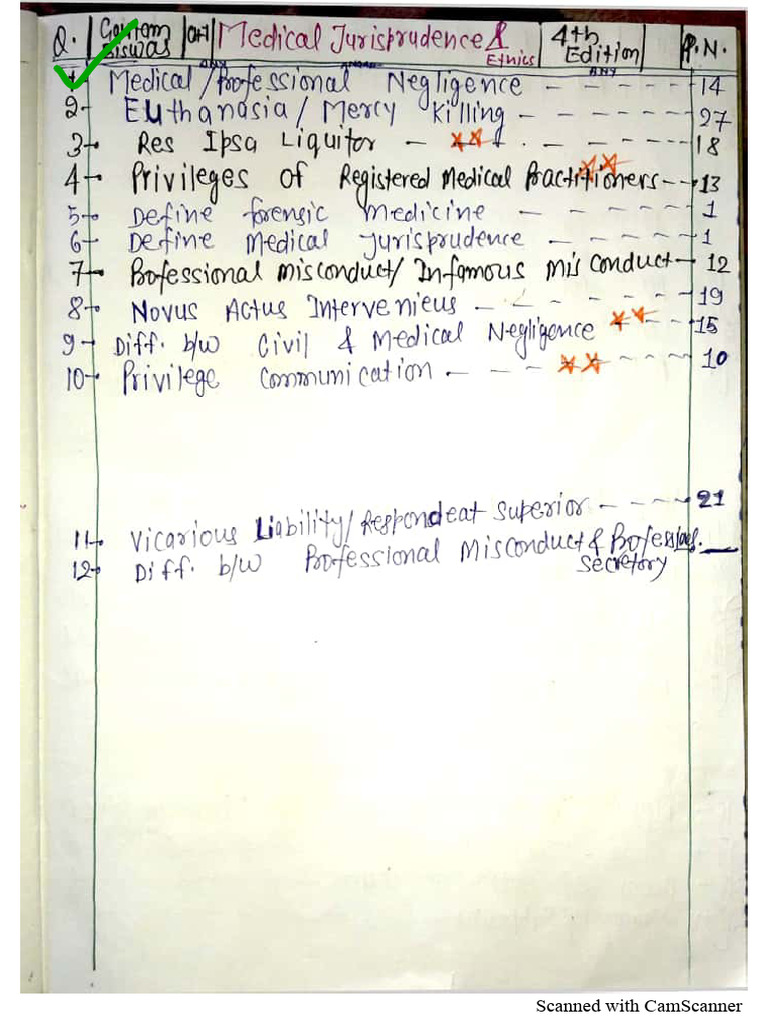 Q. Goutam Biswas CH-1 Medical Jurisprudence & Ethics 4th Edition P.N.
1→ Medical/Professional Negligence - - - - - 14
2- Euthanasia/Mercy Killing - - - - - - 27
3→ Res Ipsa Liquitor - ** - - - - - 18
4→ Privileges of Registered Medical Practitioners - - 13
5- Define forensic medicine - - - - - 1
6- Define Medical Jurisprudence - - - - - 1
7→ Professional misconduct/Infamous Misconduct - 12
8- Novus Actus Intervenieus - - - - - - 19
9- Diff. b/w Civil & Medical Negligence ** - - 15
10→ Privilege Communication - - - ** - - - 10
11→ Vicarious Liability/Respondeat Superior - - - - 21
12→ Diff. b/w Professional Misconduct & Professional
Secretory
Scanned with CamScanner